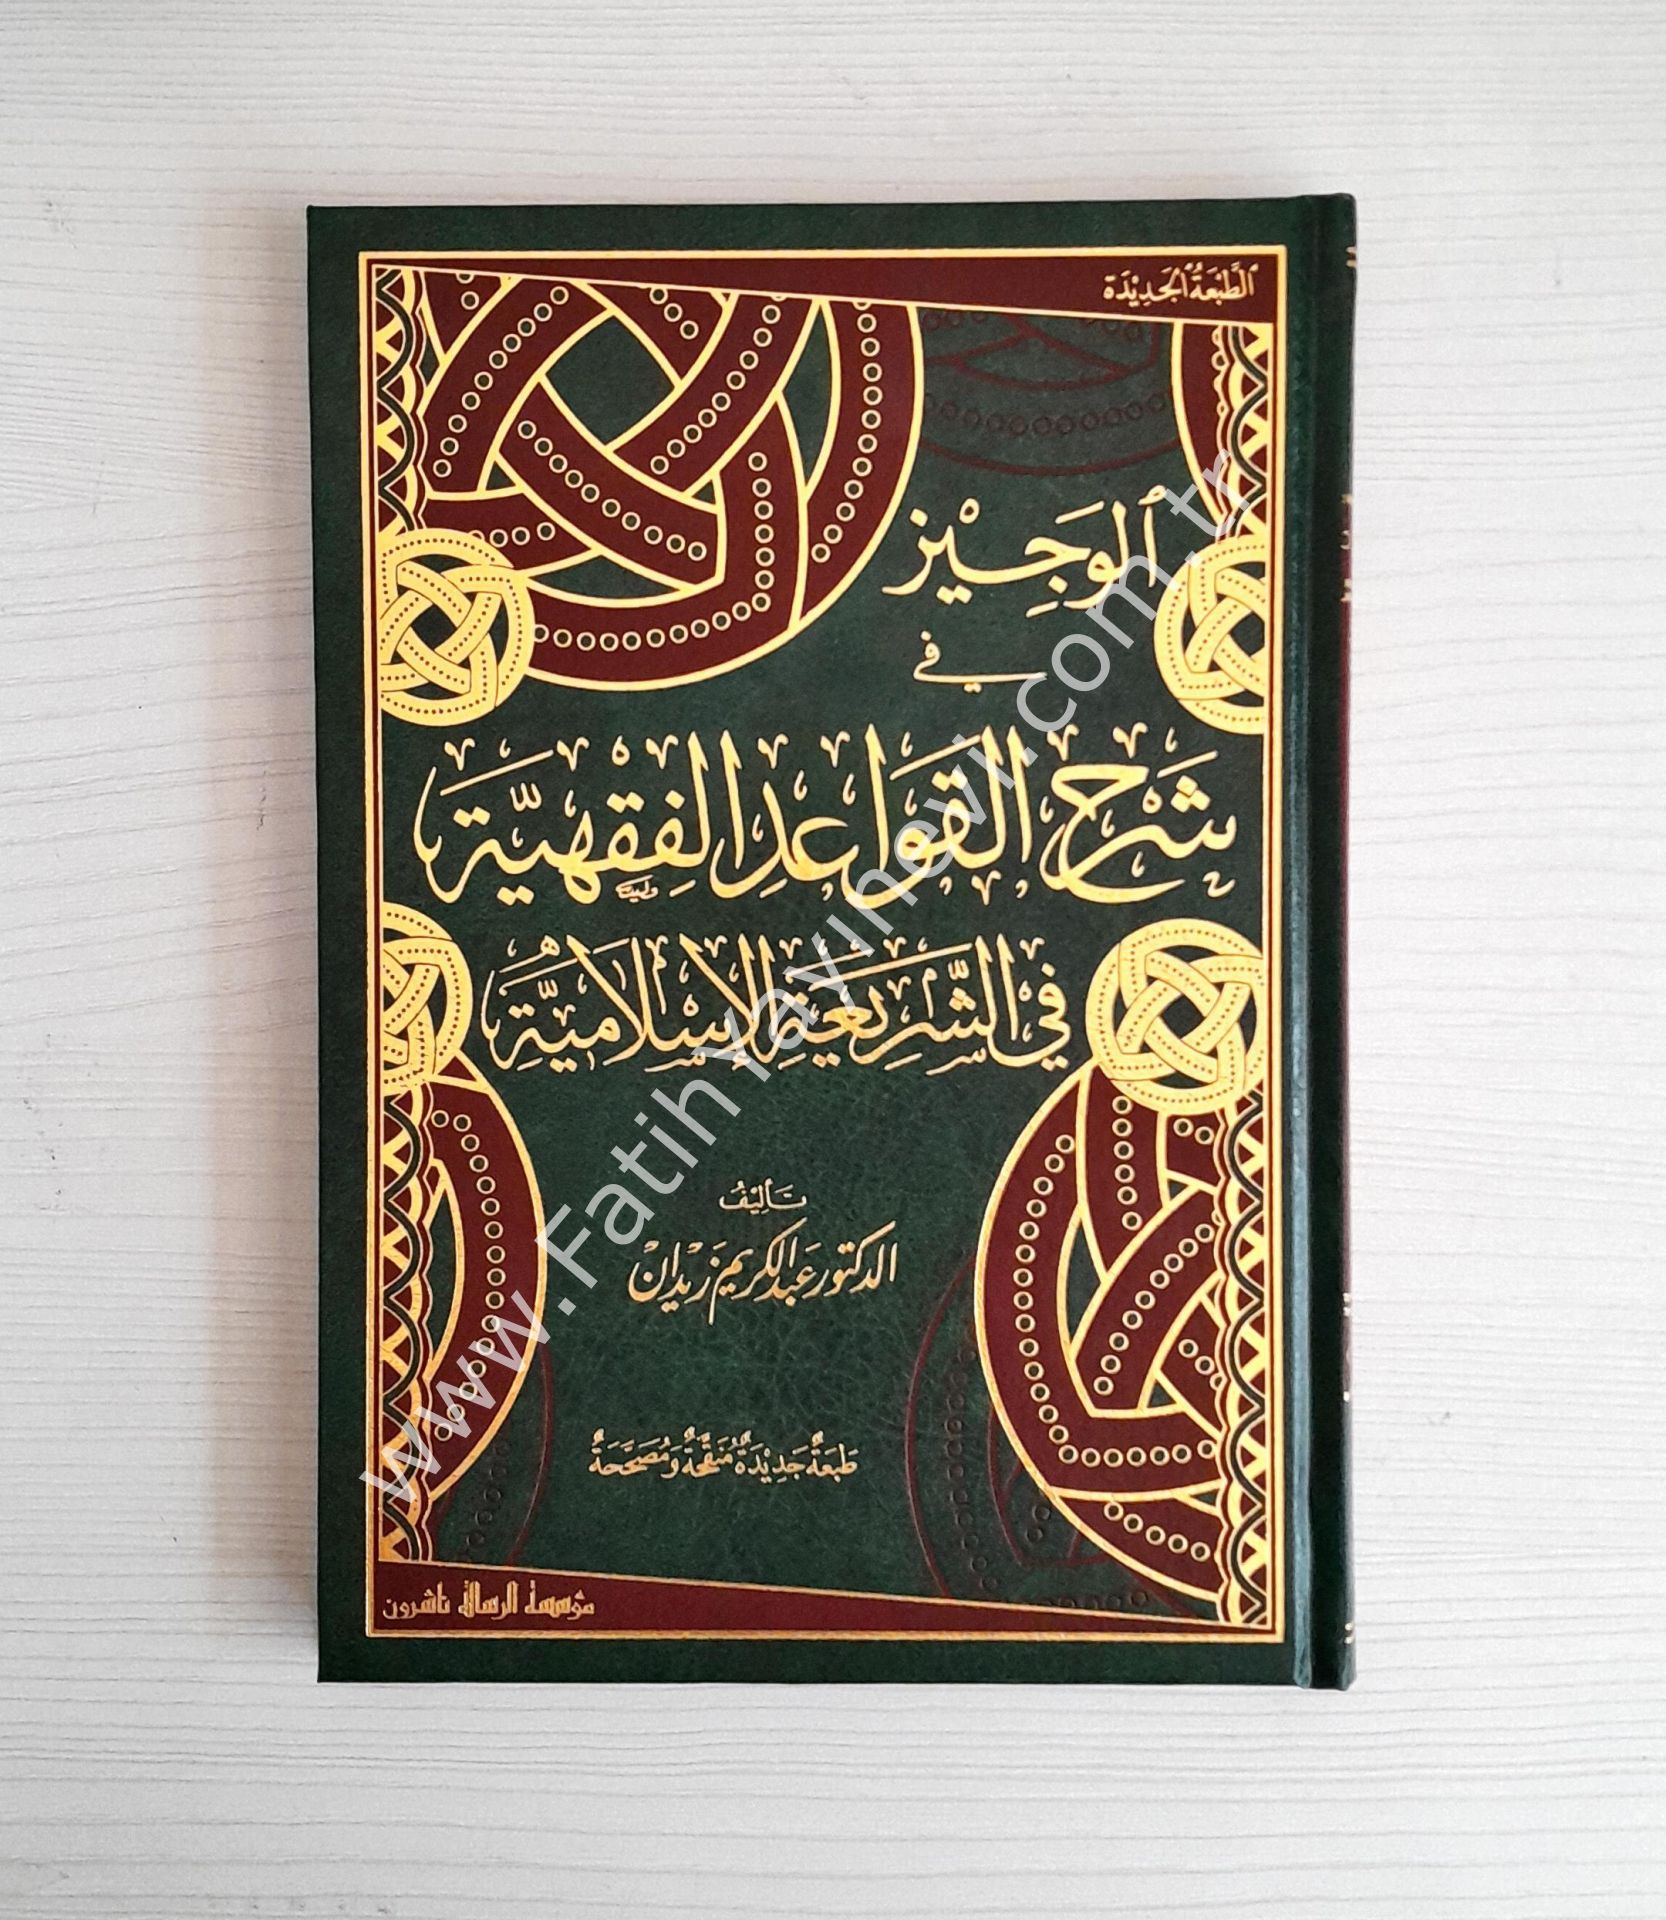 الطَّبْعَةُ الجَدِيْدَة
الوَجِيْز
في
شَرْح القَوَاعِدِ الفِقْهِيَّة
في الشَّرِيْعَةِ الإِسْلَامِيَّة
تَأليْفُ
الدكتور عَبْد الكريم زيْدَان
طَبْعَةٌ جَدِيْدَةٌ مُنَقَّحَةٌ وَمُصَحَّحَةٌ
مؤسسة الرسالة ناشرون
www.Fatihyayinevi.com.tr